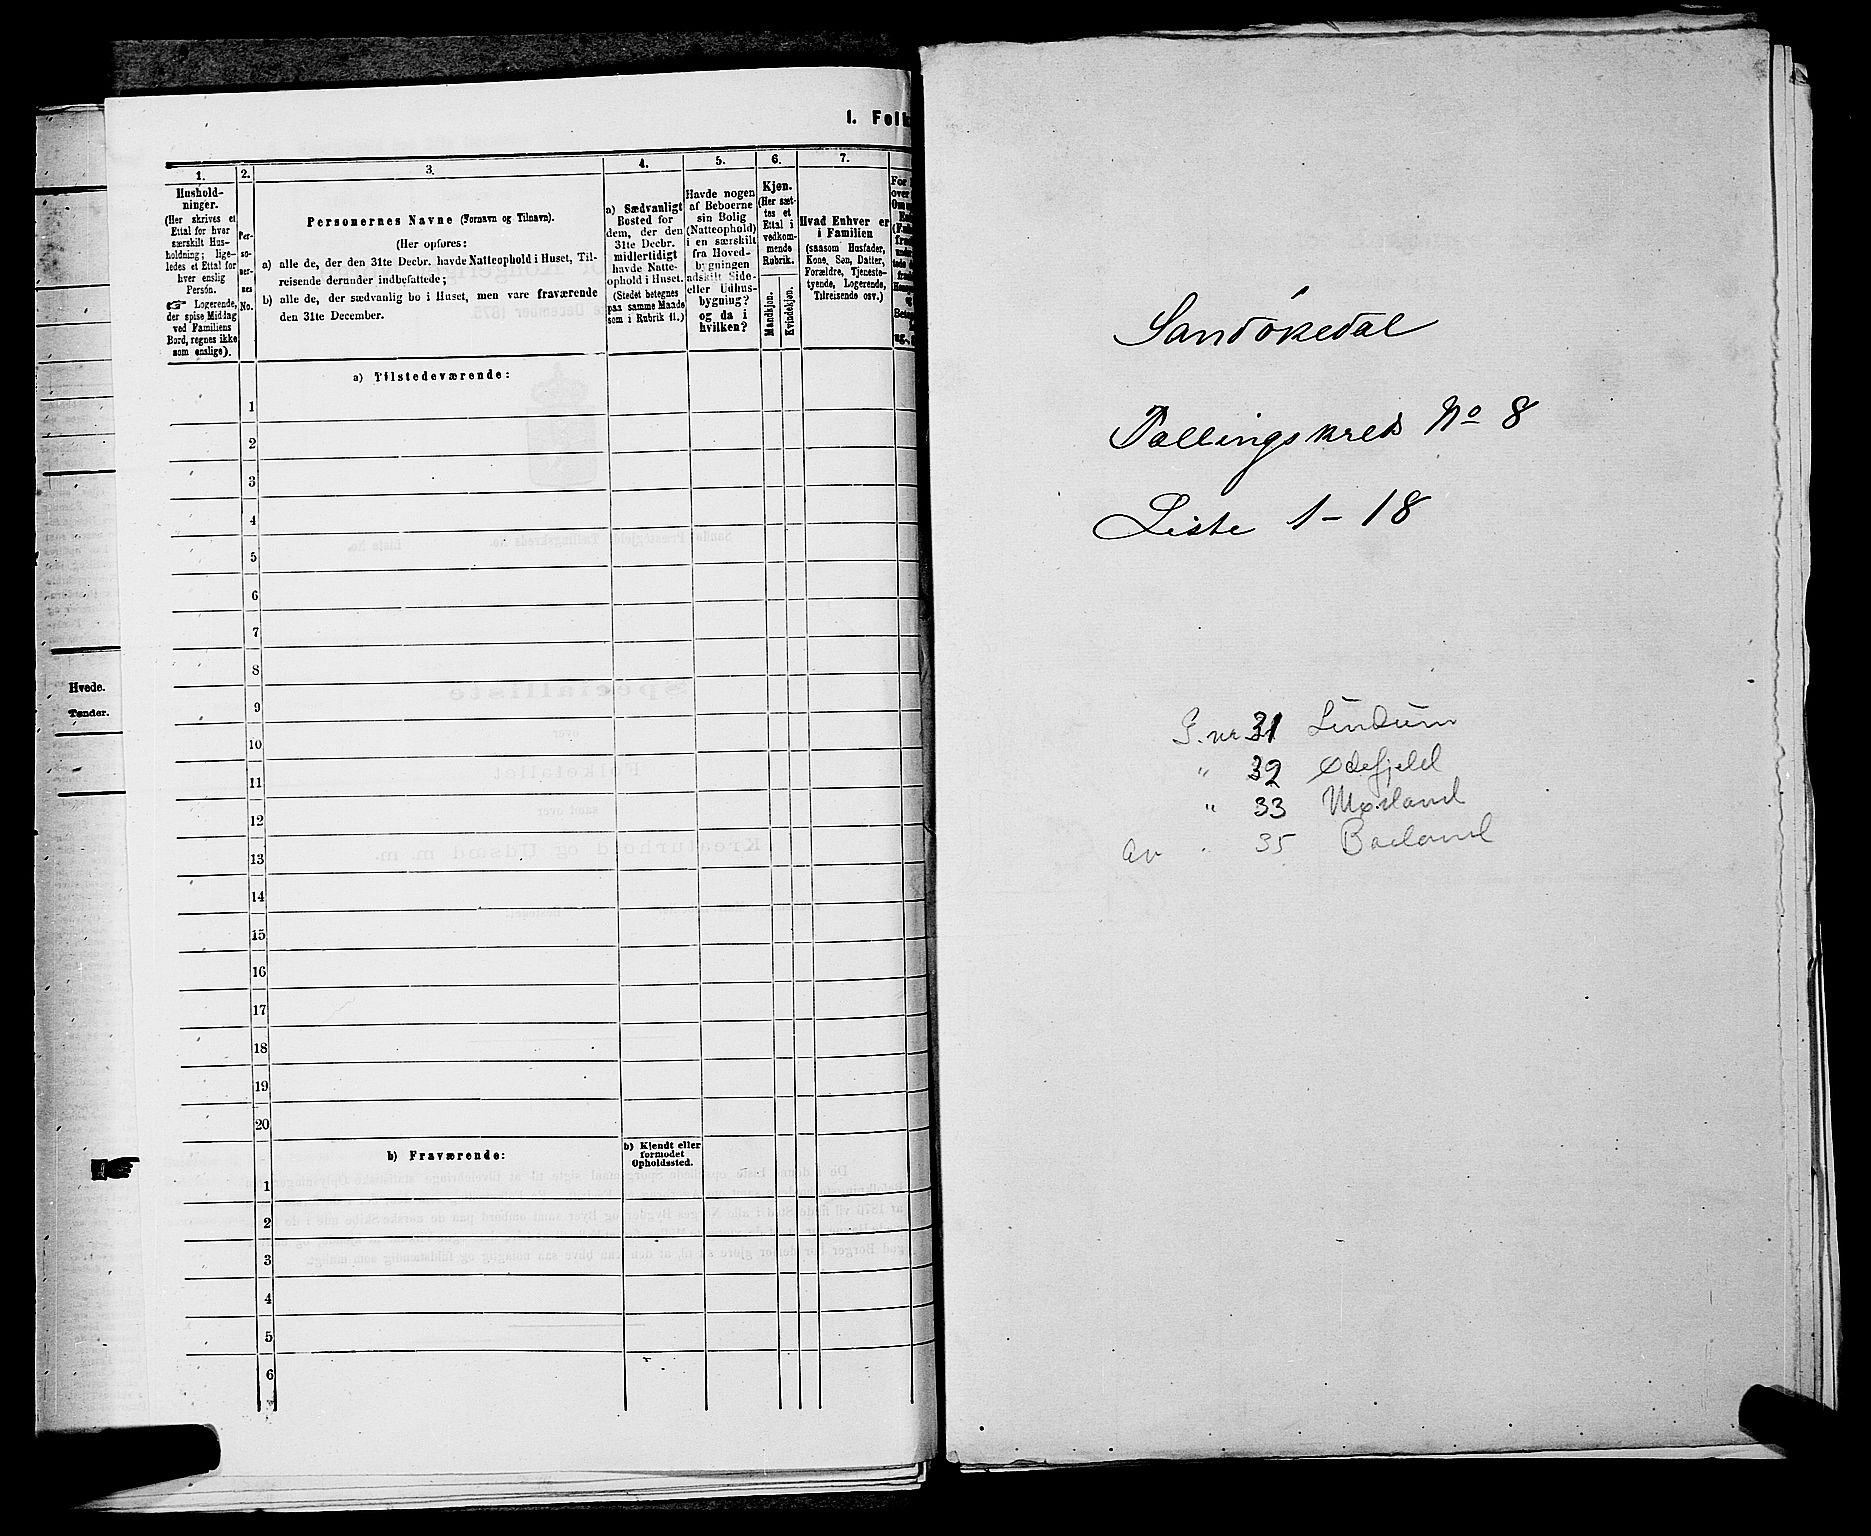 Hvede.
Tønder.
I. Folk
1.
Hushold-
ninger.
(Her skrives et
Ettal for hver
særskilt Hus-
holdning; lige-
ledes et Ettal for
hver enslig
Person.
☞ Logerende,
der spise Middag
ved Familiens
Bord, regnes ikke
som enslige).
2.
Per-
so-
ner-
nes
No.
3.
Personernes Navne (Fornavn og Tilnavn).
(Her opføres:
a) alle de, der den 31te Decbr. havde Natteophold i Huset, Til-
reisende derunder indbefattede;
b) alle de, der sædvanlig bo i Huset, men vare fraværende
den 31te December.
4.
a) Sædvanligt
Bosted for
dem, der den
31te Decbr.
midlertidigt
havde Natte-
ophold i Huset.
(Stedet betegnes
paa samme Maade
som i Rubrik 11.)
5.
Havde nogen
af Beboerne
sin Bolig
(Natteophold)
i en særskilt
fra Hoved-
bygningen
adskilt Side-
eller Udhus-
bygning?
og da i
hvilken?
6.
Kjøn.
(Her sæt-
tes et
Ettal i
vedkom-
mende
Rubrik.
Mandkjøn.
Kvindekjøn.
7.
Hvad Enhver er
i Familien
(saasom Husfader,
Kone, Søn, Datter,
Forældre, Tjeneste-
tyende, Logerende,
Tilreisende osv.)
For
over
a) Tilstedeværende:
1
2
3
4
5
6
7
8
9
10
11
12
13
14
15
16
17
18
19
20
b) Fraværende:
b) Kjendt eller
formodet
Opholdssted.
1
2
3
4
5
6
Sandøkedal
Tællingskreds No 8
Liste 1-18
G. nr. 31 Lindum
" 32 Ødefjeld
" 33 Mørland
av " 35 Barland